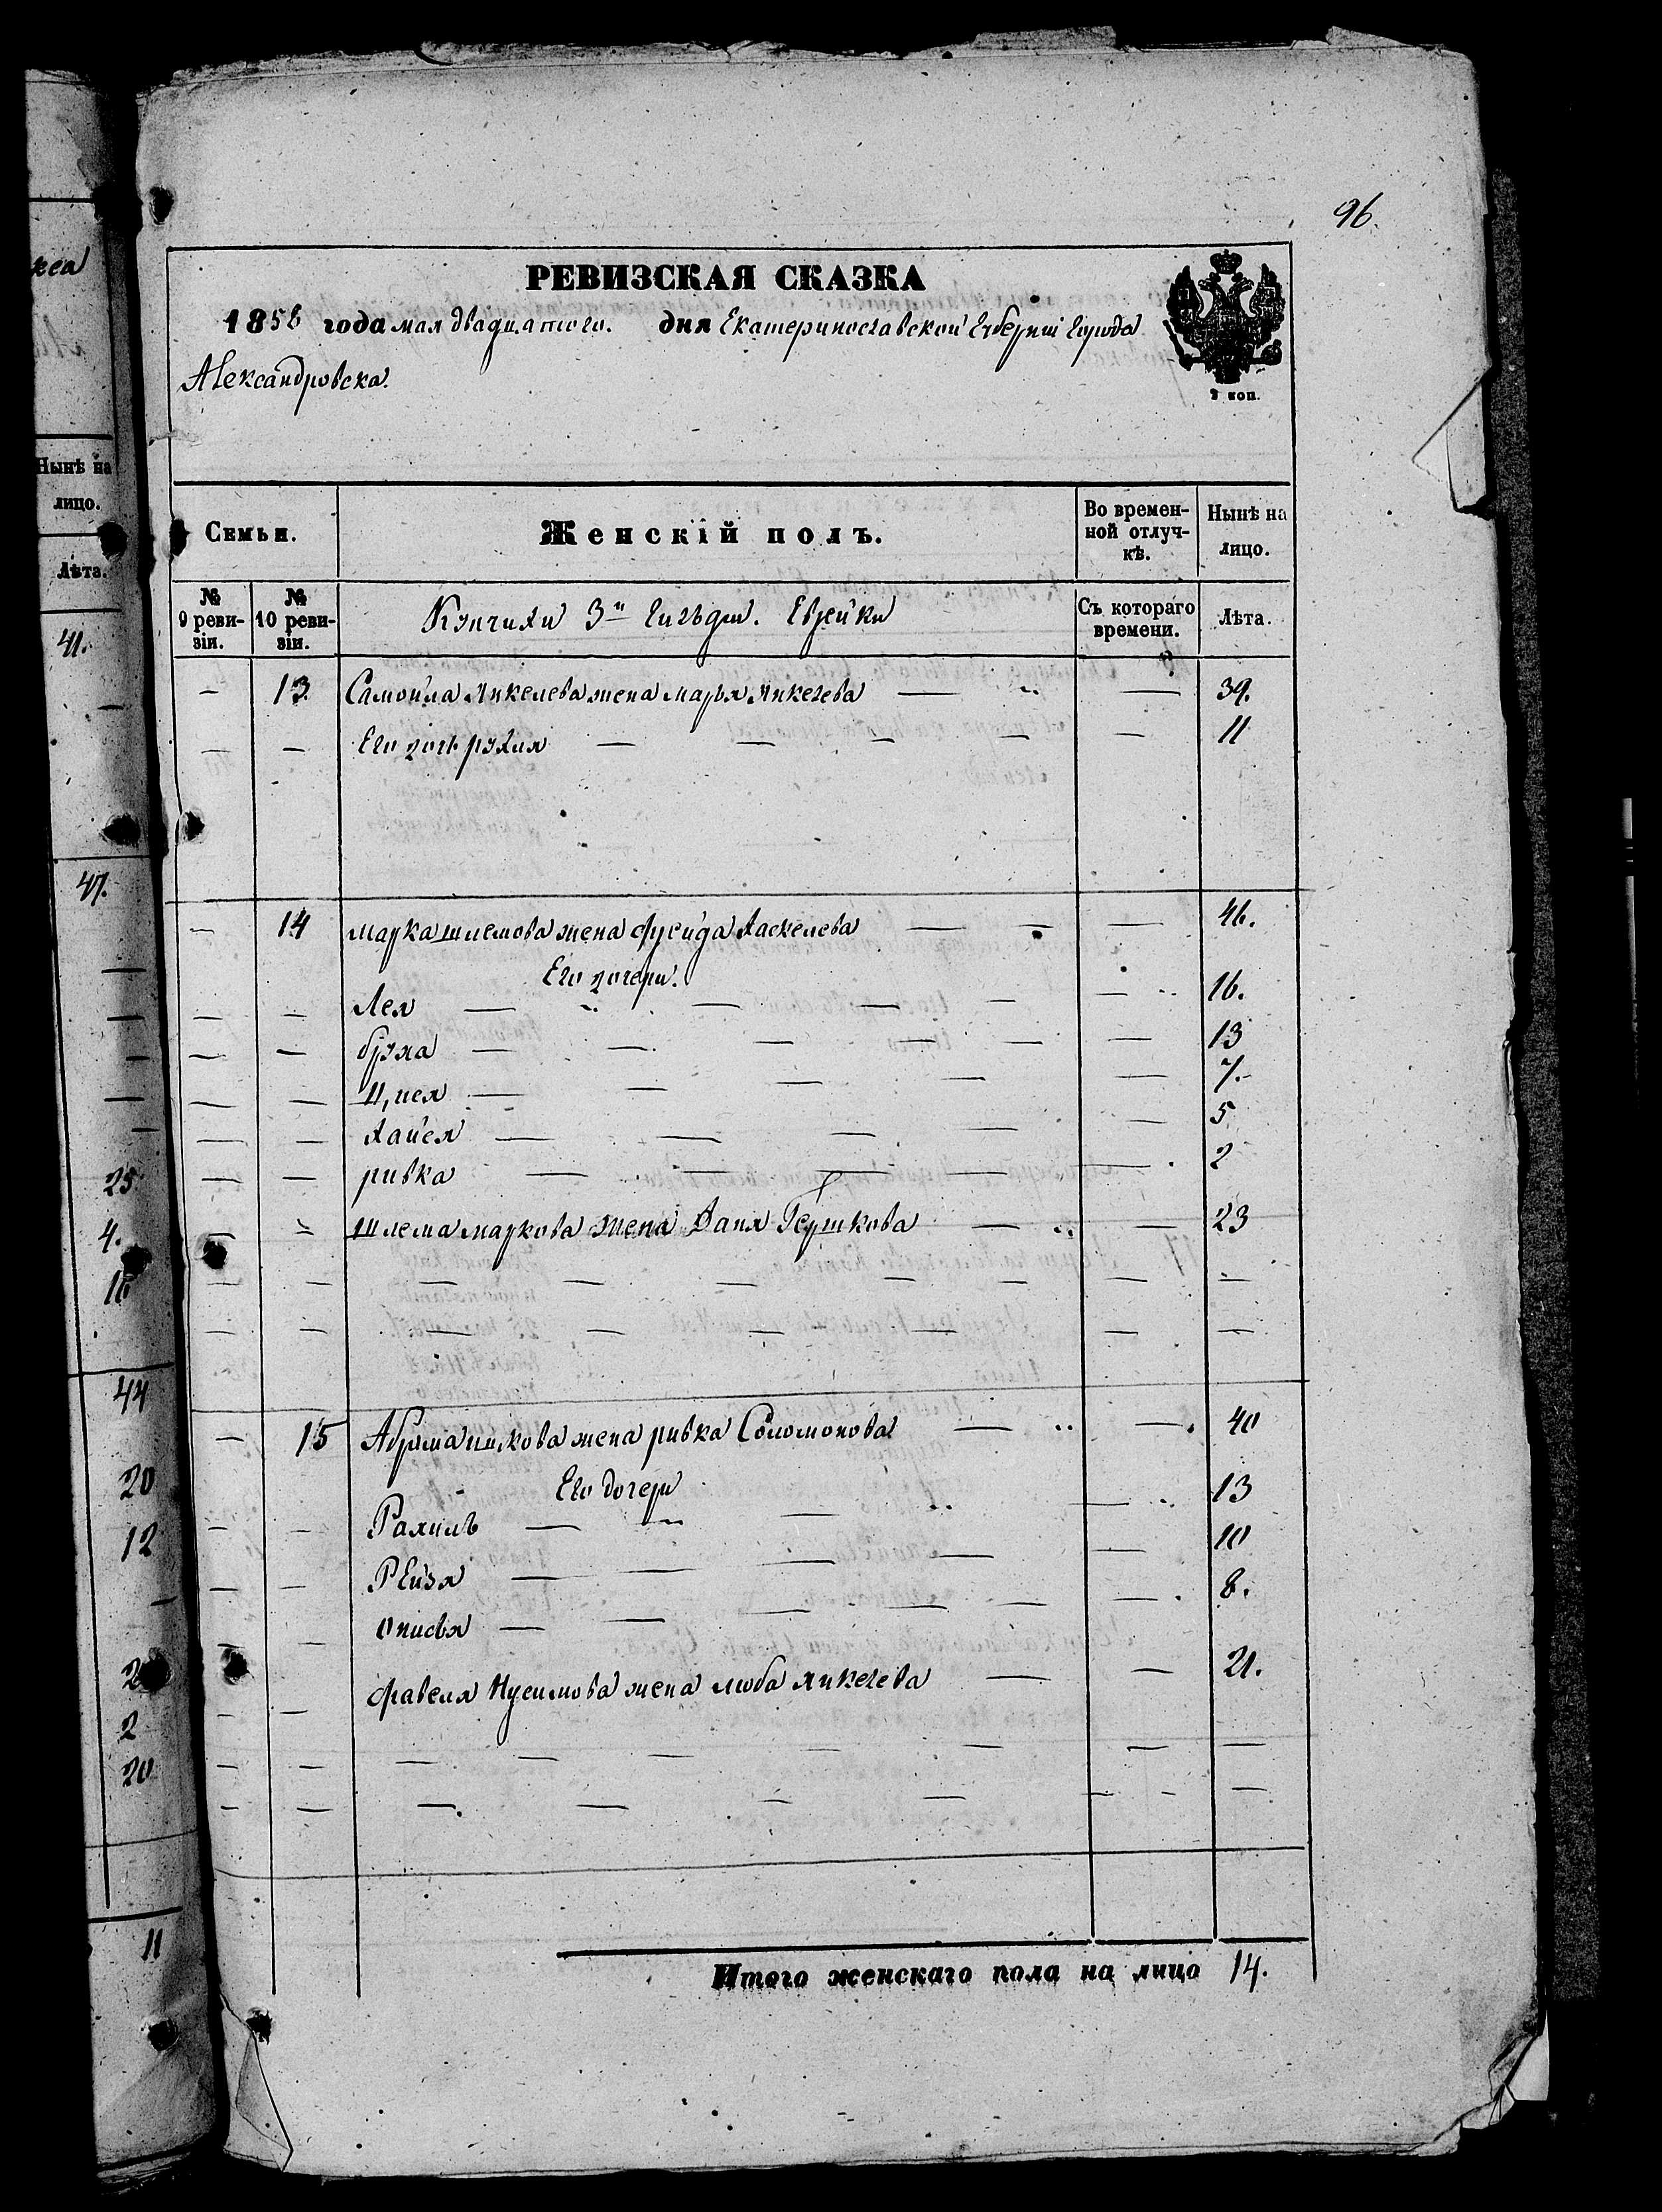 96.
РЕВИЗСКАЯ СКАЗКА
1858 года мая двадцатого. дня Екатеринославской Губернии Города
Александровска.
2 коп.
Семьи.
Женскій полъ.
Во временной отлучкѣ.
Нынѣ на лицо.
№ 9 ревизіи.
№ 10 ревизіи.
Купчихи 3й Гильдии. Еврейки
Съ котораго времени.
Лѣта.
— 13 Самойла Янкелева жена марья Янкелева — — 39.
— — Его дочь рухля — — 11
— 14 марка шлемова жена фрейда Хаскелева — — 46.
Его дочери.
— — Лея — — 16.
— — бруха — — 13
— — Ципея — — 7.
— — Хайея — — 5
— — ривка — — 2
— — шлема маркова жена Ханя Гершкова — — 23
— 15 Абрама ицкова жена ривка Соломонова — — 40
Его дочери
— — Рахиль — — 13
— — Рейзя — — 10
— — — — 8.
— — фавеля Нусимова жена люба янкелева — — 21.
Итого женскаго пола на лицо 14.
Нынѣ на
лицо.
Лѣта.
41.
47.
25
4.
16
44
20
12
2
20
11